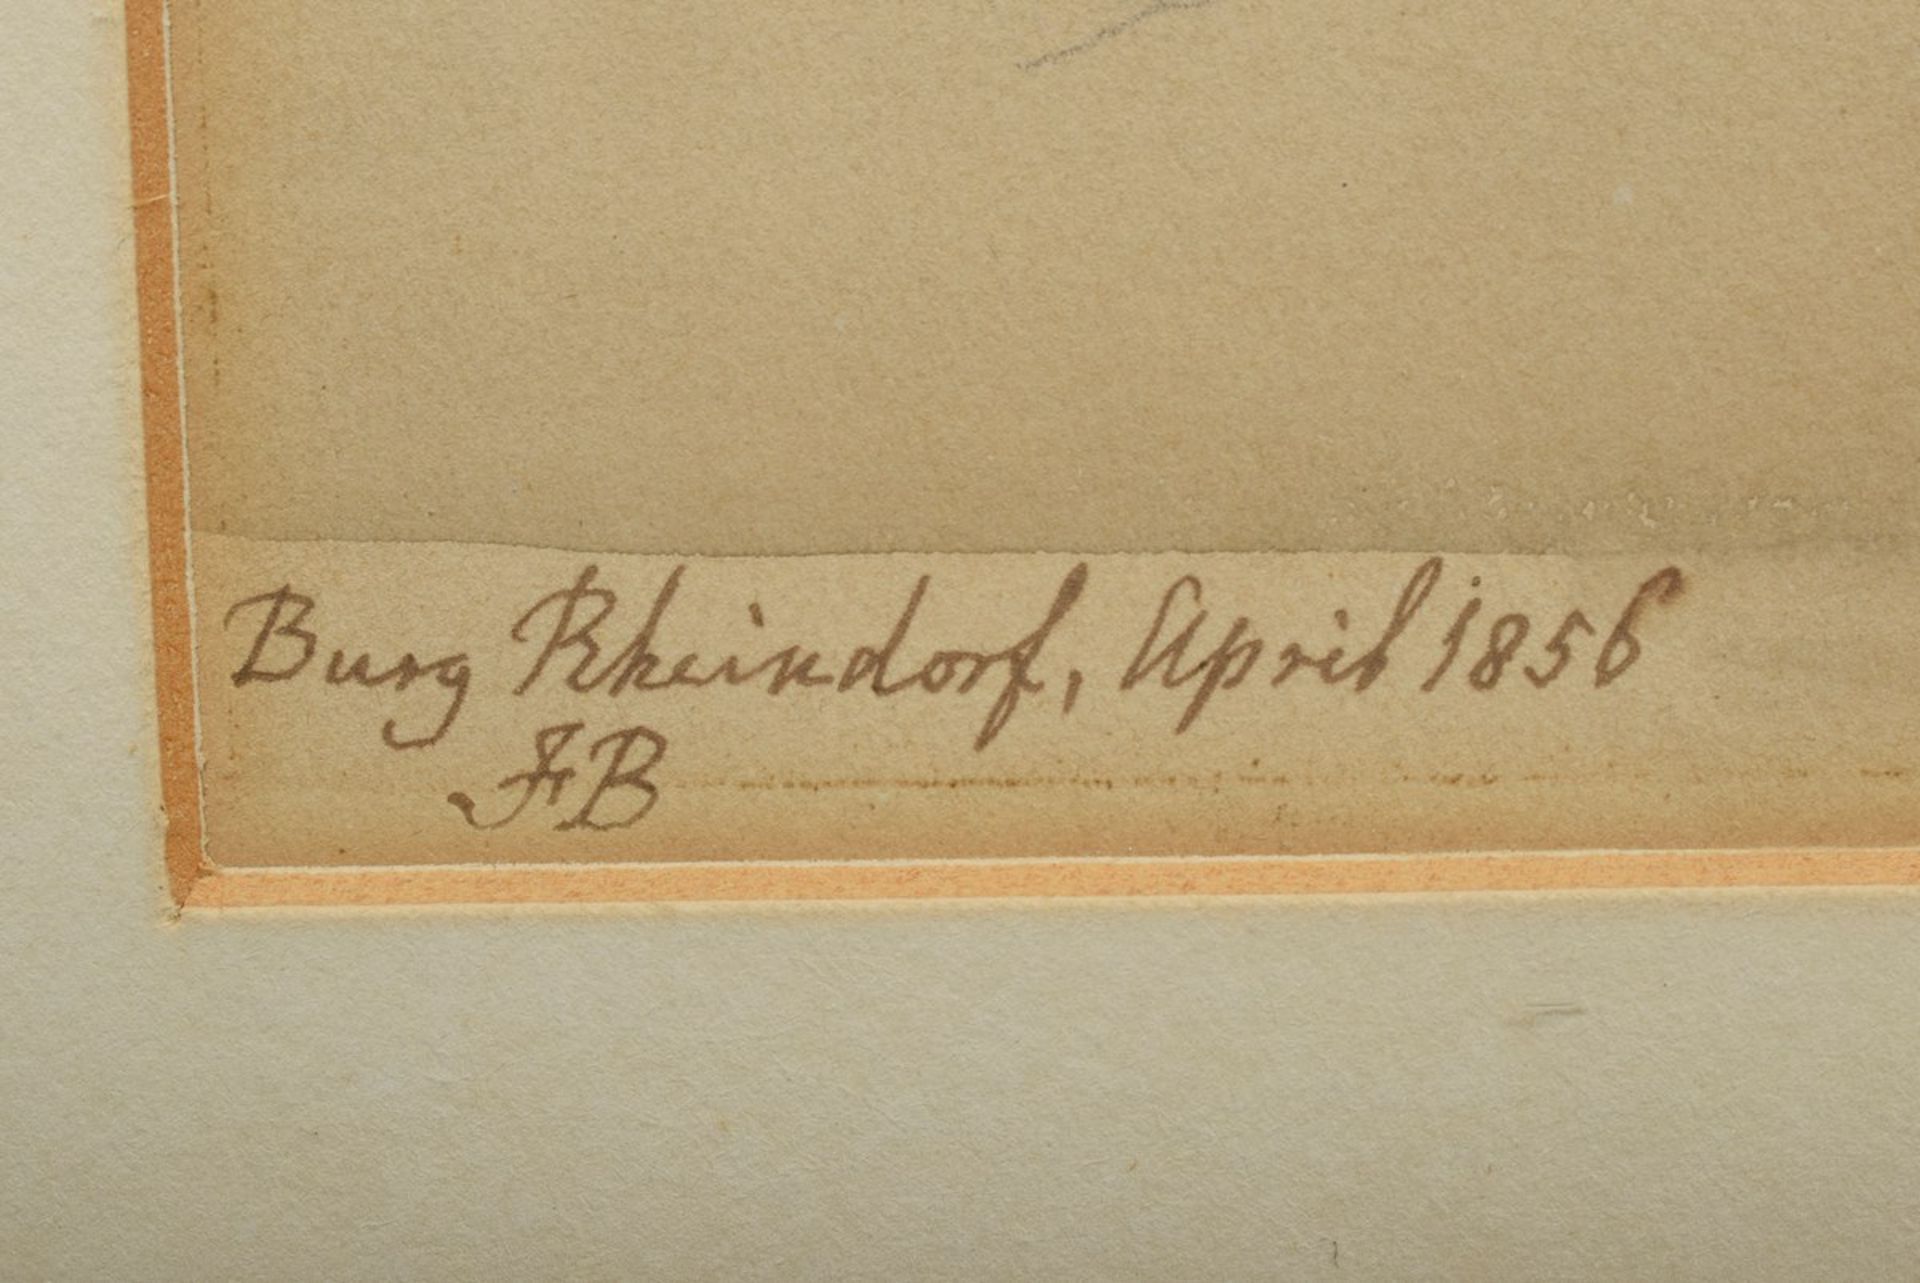 Burg Rheindorf, April 1856
FB